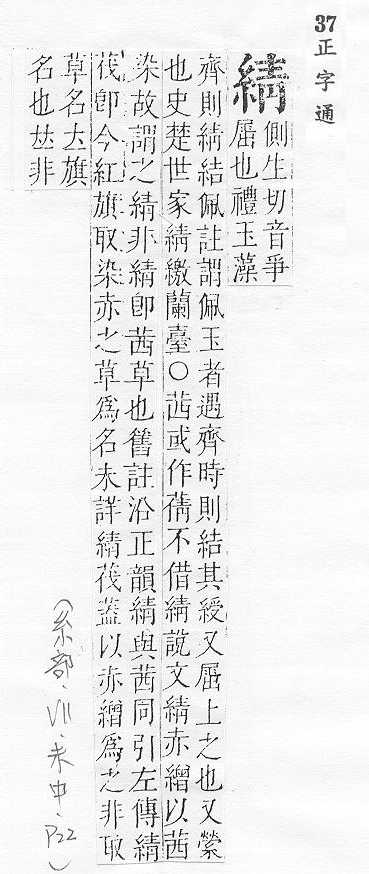 37正字通
綪
側生切音爭
屈也禮玉藻
齊則綪結佩註謂佩玉者遇齊時則結其綬又屈上之也又縈
也史楚世家綪繳蘭臺○茜或作蒨不借綪說文綪赤繒以茜
染故謂之綪非綪卽茜草也舊註沿正韻綪與茜同引左傳綪
茷卽今紅旗取染赤之草爲名未詳綪茷蓋以赤繒爲之非取
草名大旗
名也𠀤非
(糸部·VII·未中·P22)